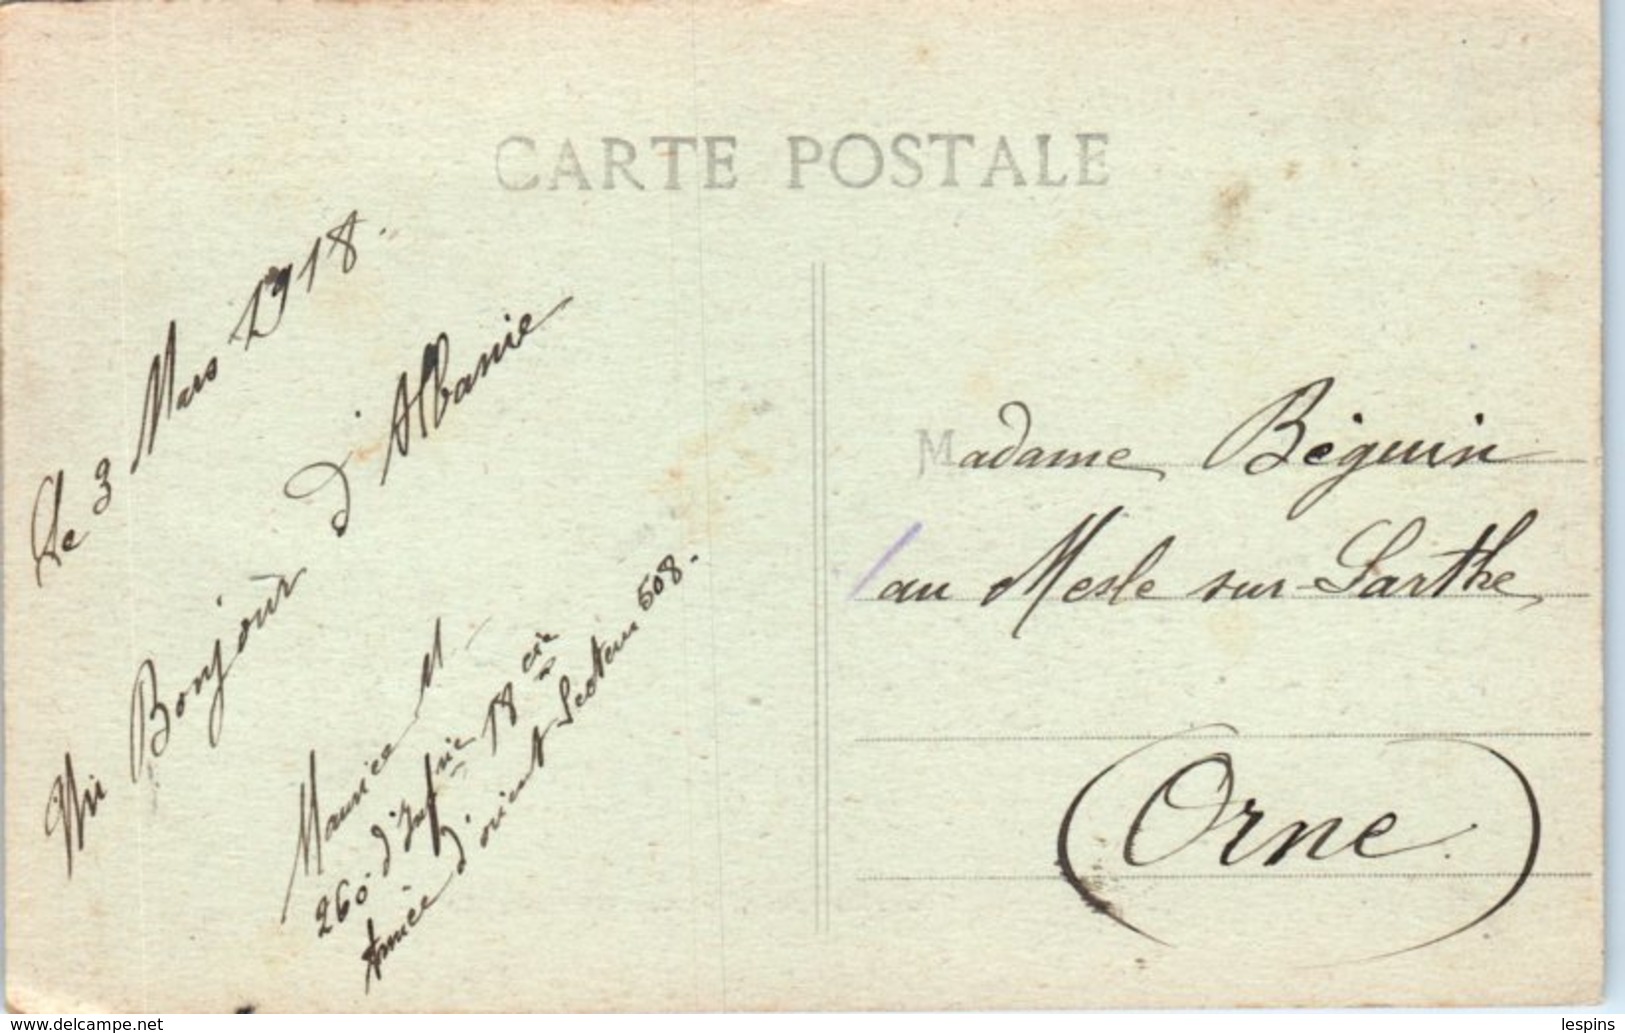 CARTE POSTALE
Le 3 Mars 1918.
Un Bonjour d'Albanie
Maurice
260 d'Infrie 18 cie
Armée d'orient Secteur 508.
Madame Béguin
au Mesle sur Sarthe
(Orne)
www.delcampe.net
lespins